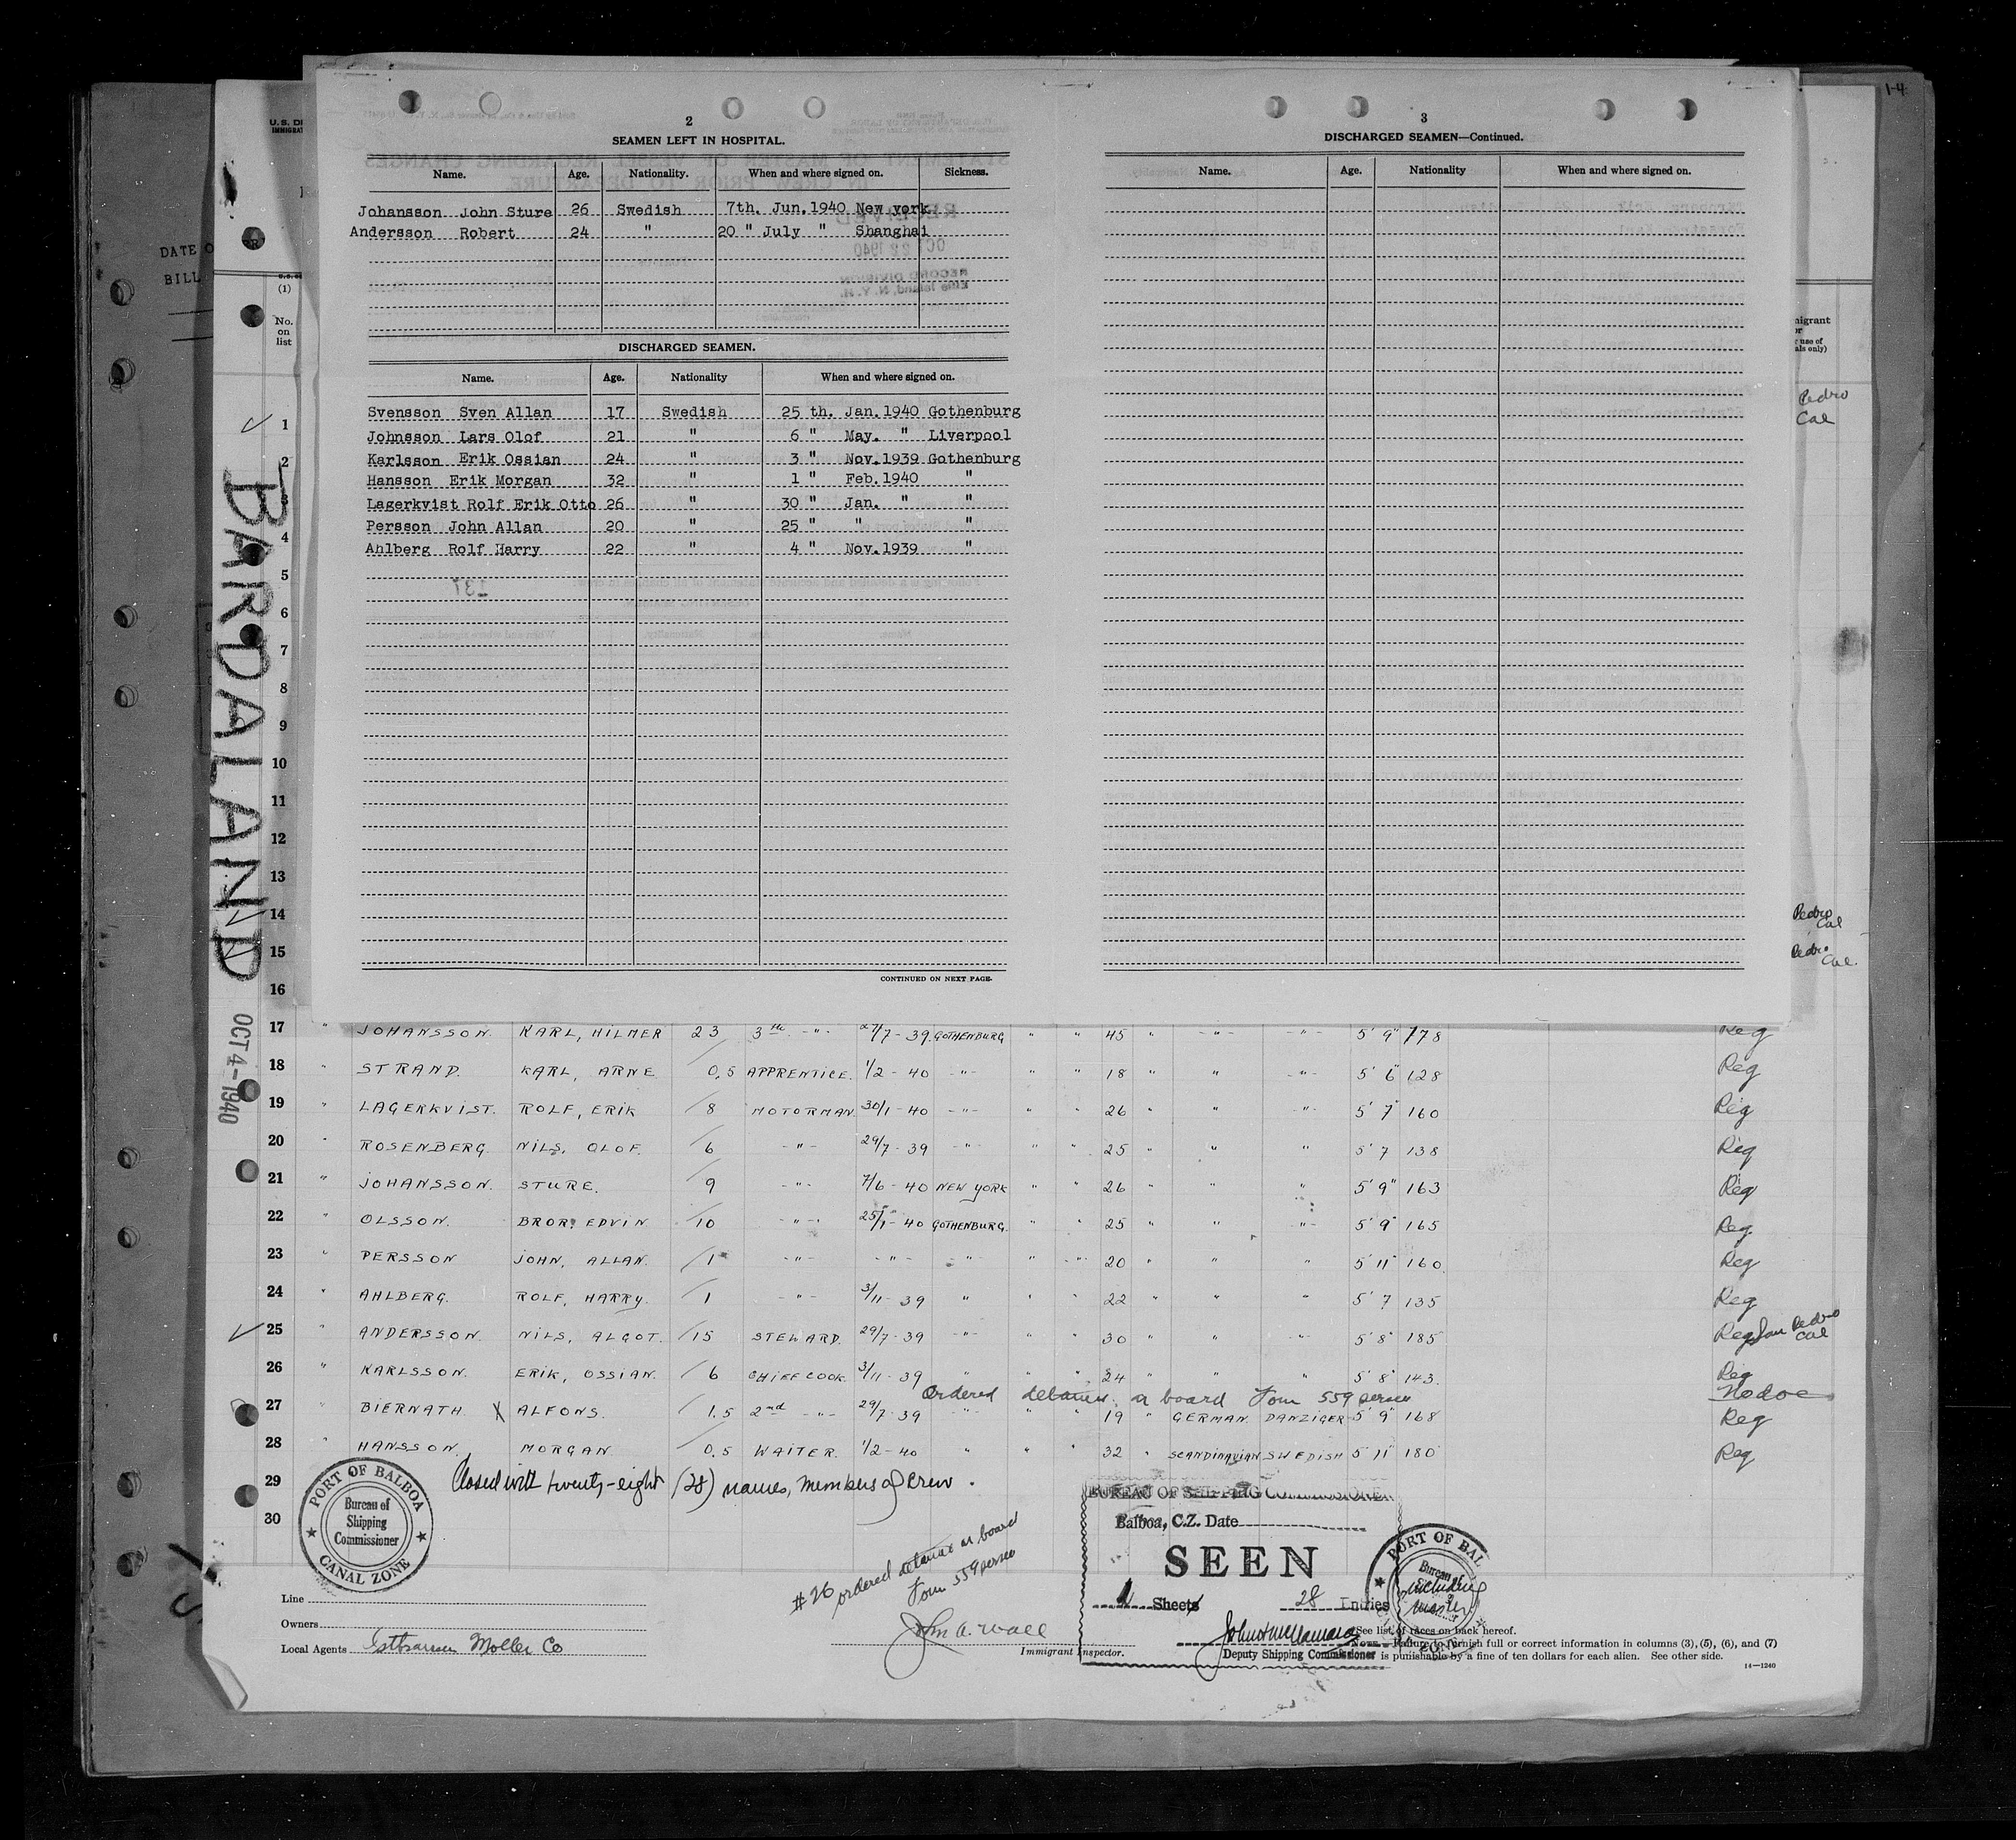 1-4
2
SEAMEN LEFT IN HOSPITAL.
Name. Age. Nationality. When and where signed on. Sickness.
Johansson John Sture 26 Swedish 7th. Jun.1940 New york
Andersson Robert 24 " 20 " July " Shanghai
DISCHARGED SEAMEN.
Name. Age. Nationality When and where signed on.
Svensson Sven Allan 17 Swedish 25 th. Jan.1940 Gothenburg
Johnsson Lars Olof 21 " 6 " May. " Liverpool
Karlsson Erik Ossian 24 " 3 " Nov.1939 Gothenburg
Hansson Erik Morgan 32 " 1 " Feb.1940 "
Lagerkvist Rolf Erik Otto 26 " 30 " Jan. " "
Persson John Allan 20 " 25 " " "
Ahlberg Rolf Harry 22 " 4 " Nov.1939 "
CONTINUED ON NEXT PAGE.
3
DISCHARGED SEAMEN—Continued.
Name. Age. Nationality When and where signed on.
U.S. DE
IMMIGRAT
DATE O
BILL
(1)
No.
on
list
migrant
or
r use of
als only)
Pedro
Cal
Pedro
Cal
Pedro
Cal.
BARDALAND
OCT 4-1940
1
2
3
4
5
6
7
8
9
10
11
12
13
14
15
16
17 " JOHANSSON. KARL, HILMER 23 3th -"- 27/7-39. GOTHENBURG " " 45 " -"- -"- 5' 9" 178 Reg
18 " STRAND. KARL, ARNE 0,5 APPRENTICE. 1/2-40 -"- " " 18 " " -"- 5' 6" 128 Reg
19 " LAGERKVIST. ROLF, ERIK 8 MOTORMAN. 30/1-40 -"- " " 26 " " "- 5' 7" 160 Reg
20 " ROSENBERG. NILS, OLOF. 6 -"- 29/7-39 -"- " " 25 " " " 5' 7 138 Reg
21 " JOHANSSON. STURE. 9 -"- 7/6-40 NEW YORK " " 26 " " " 5' 9" 163 Reg
22 " OLSSON. BROR, EDVIN 10 -"- 25/1-40 GOTHENBURG. " " 25 " " -"- 5' 9" 165 Reg.
23 " PERSSON JOHN, ALLAN. 1 -"- -"- -"- " " 20 " " " 5' 11" 160. Reg
24 " AHLBERG. ROLF, HARRY. 1 -"- 3/11-39 " " " 22 " " " 5' 7 135 Reg
25 " ANDERSSON. NILS, ALGOT. 15 STEWARD. 29/7-39 -"- " " 30 " " -"- 5' 8" 185 Reg San Pedro Cal
26 " KARLSSON. ERIK, OSSIAN. 6 CHIEF COOK. 3/11-39 " " " 24 " " " 5' 8" 143. Reg
Ordered detained on board Form 559
27 " BIERNATH. X ALFONS. 1,5 2nd -"- 29/7-39 -"- " " 19 " GERMAN. DANZIGER 5' 9" 168 Reg
28 " HANSSON. MORGAN. 0,5 WAITER. 1/2-40 " " " 32 " SCANDINAVIAN SWEDISH 5' 11" 180 Reg
29
Closed with twenty-eight (28) names, members of crew.
30
PORT OF BALBOA
Bureau of
Shipping
Commissioner
CANAL ZONE
#26 ordered detained on board
Form 559
BUREAU OF SHIPPING COMMISSIONER
Balboa, C.Z. Date
SEEN
Sheets 28 Entries
including
master
PORT OF BAL
Bureau of
ZONE
Line
Owners
Local Agents Moller Co
John A. Wall
Immigrant Inspector.
Deputy Shipping Commissioner
See list of races on back hereof.
NOTE.—Failure to furnish full or correct information in columns (3), (5), (6), and (7)
is punishable by a fine of ten dollars for each alien. See other side.
14—1240